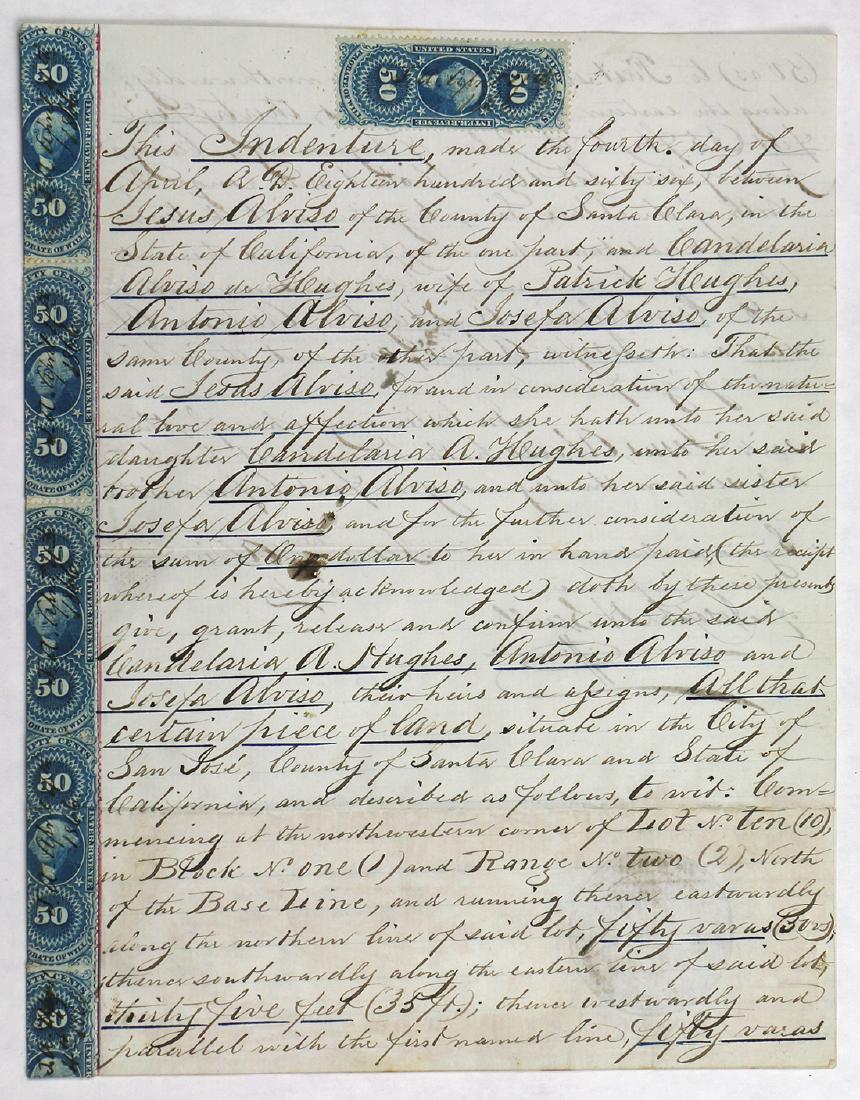 FIFTY CENTS
50
50
PROBATE OF WILL
INTER. REVENUE
FIFTY CENTS
50
50
PROBATE OF WILL
INTER. REVENUE
FIFTY CENTS
50
50
PROBATE OF WILL
INTER. REVENUE
FIFTY CENTS
50
50
PROBATE OF WILL
INTER. REVENUE
FIFTY CENTS
50
UNITED STATES
50
50
FIFTY CENTS
INTER. REVENUE
This Indenture, made the fourth. day of
April, A. D. Eighteen hundred and sixty six, between
Jesus Alviso of the County of Santa Clara, in the
State of California, of the one part, and Candelaria
Alviso de Hughes, wife of Patrick Hughes,
Antonio Alviso, and Josefa Alviso, of the
same County, of the other part, witnesseth: That the
said Jesus Alviso, for and in consideration of the natu-
ral love and affection which she hath unto her said
daughter Candelaria A. Hughes, unto her said
brother Antonio Alviso, and unto her said sister
Josefa Alviso, and for the further consideration of
the sum of One dollar to her in hand paid, (the receipt
whereof is hereby acknowledged) doth by these presents
give, grant, release and confirm unto the said
Candelaria A. Hughes, Antonio Alviso and
Josefa Alviso, their heirs and assigns, All that
certain piece of land, situate in the City of
San José, County of Santa Clara and State of
California, and described as follows, to wit: Com=
mencing at the northwestern corner of Lot No. ten (10),
in Block No. one (1) and Range No. two (2), North
of the Base Line, and running thence eastwardly
along the northern line of said lot, fifty varas (50 vs),
thence southwardly along the eastern line of said lot,
thirty five feet (35 ft.); thence westwardly and
parallel with the first named line, fifty varas